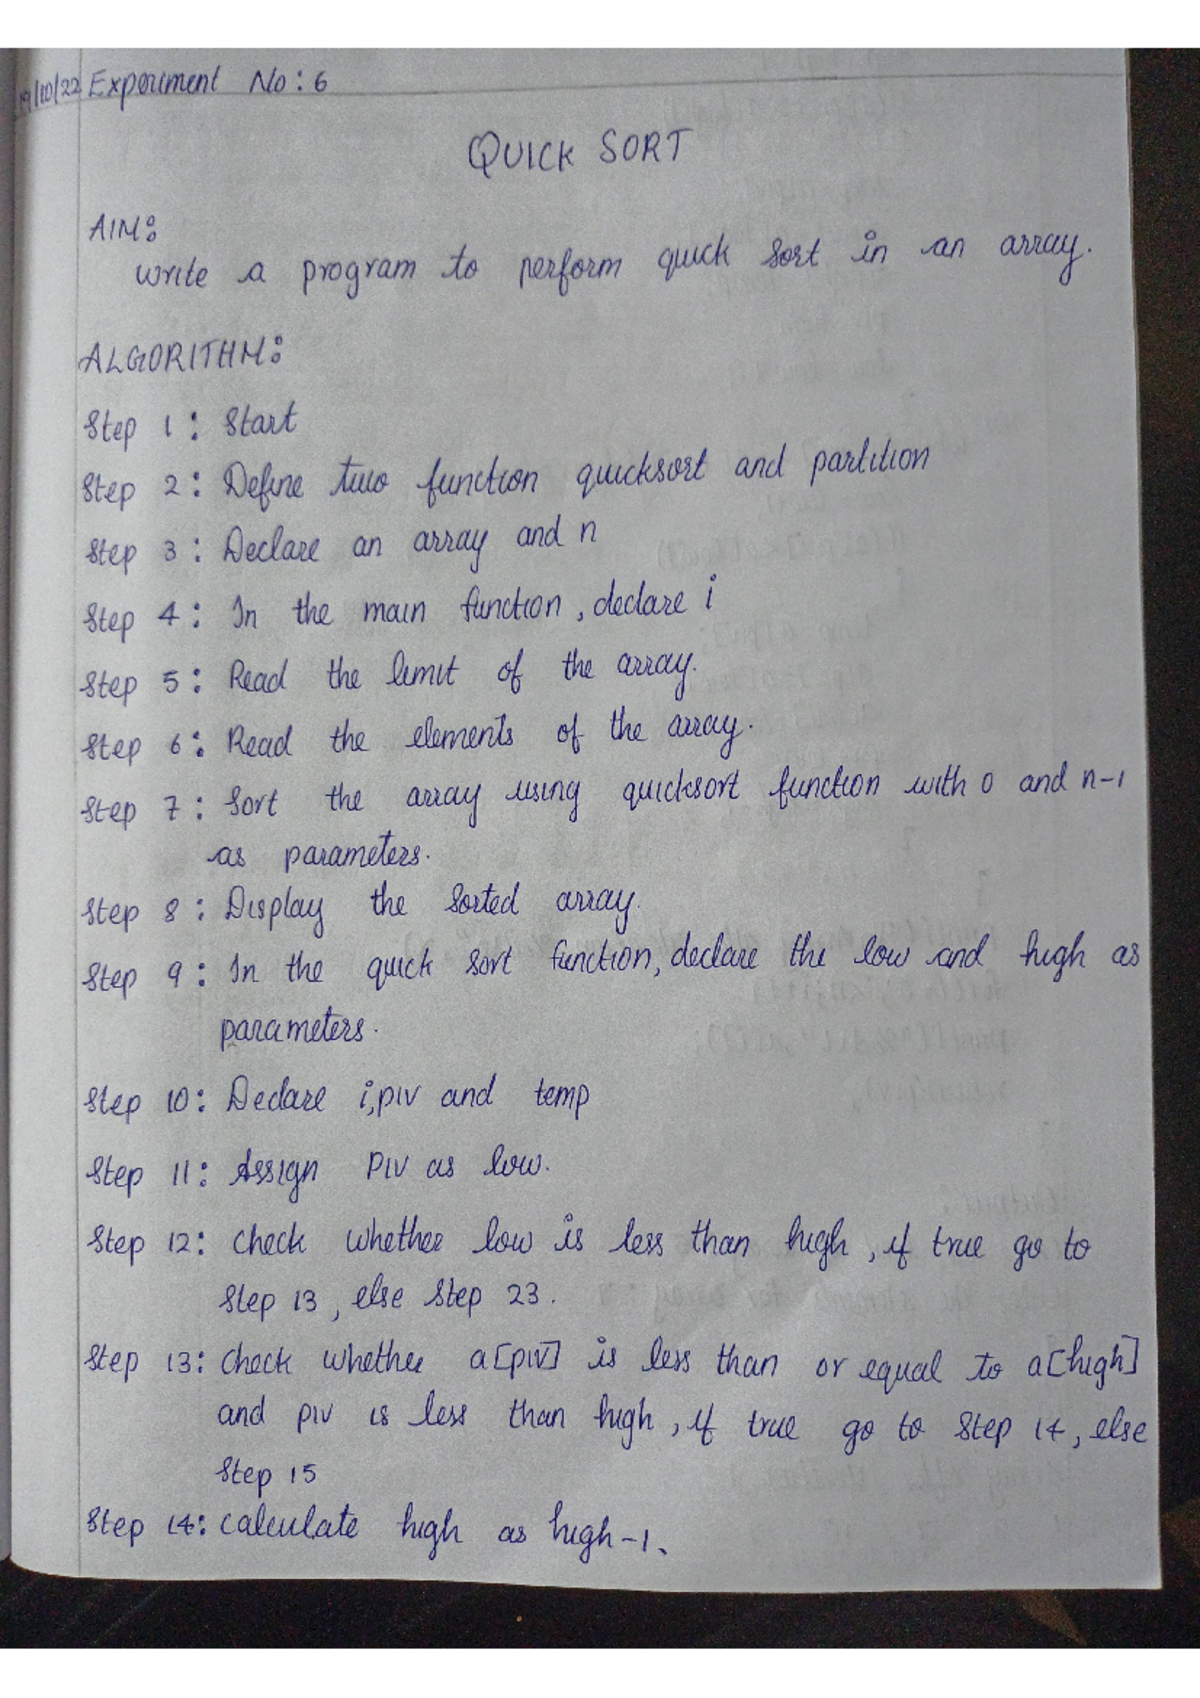 19/10/22 Experiment No: 6
QUICK SORT
AIM:
Write a program to perform quick sort in an array.
ALGORITHM:
Step 1: Start
Step 2: Define two function quicksort and partition
Step 3: Declare an array and n
Step 4: In the main function, declare i
Step 5: Read the limit of the array.
Step 6: Read the elements of the array.
Step 7: Sort the array using quicksort function with 0 and n-1
as parameters.
Step 8: Display the sorted array.
Step 9: In the quick sort function, declare the low and high as
parameters.
Step 10: Declare i, piv and temp
Step 11: Assign Piv as low.
Step 12: Check whether low is less than high, if true go to
Step 13, else Step 23.
Step 13: Check whether a[piv] is less than or equal to a[high]
and piv is less than high, if true go to Step 14, else
Step 15
Step 14: Calculate high as high-1.